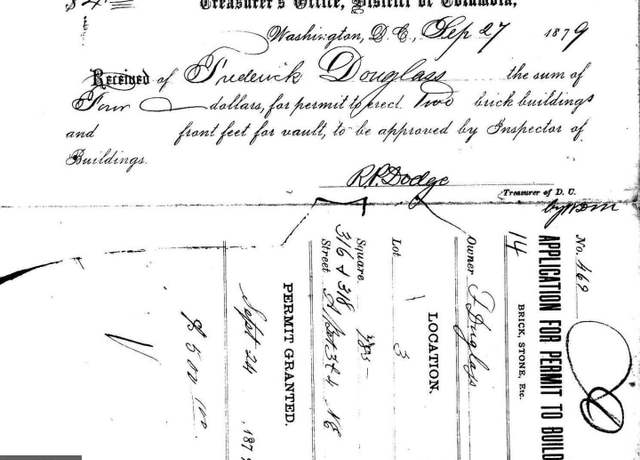 $4
Treasurer's Office, District of Columbia,
Washington, D.C., Sep 27 1879
Received of Frederick Douglass the sum of
Four dollars, for permit to erect Two brick buildings
and front feet for vault, to be approved by Inspector of
Buildings.
R.P. Dodge
Treasurer of D. C.
No. 469
APPLICATION FOR PERMIT TO BUILD
14
BRICK, STONE, Etc.
Owner F Duglass
LOCATION.
Lot 3
Square
316 & 318
Street A Bet 3 & 4 NE
PERMIT GRANTED.
Sept 24, 187
$ 500